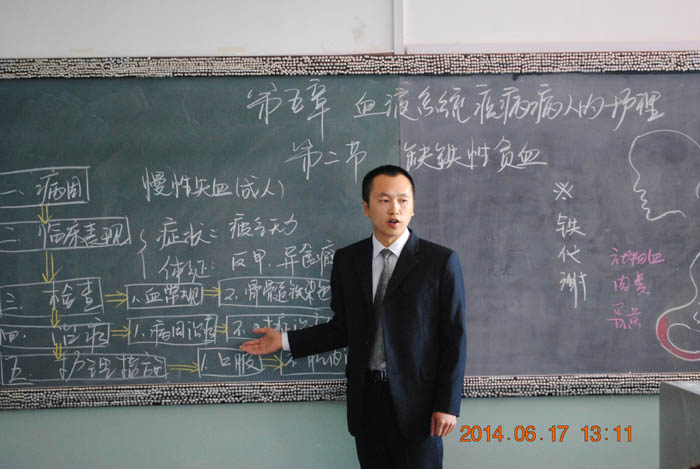 第五章 血液系统疾病病人的护理
第二节 缺铁性贫血
一、病因 慢性失血(成人)
二、临床表现 症状: 疲乏无力
体征: 反甲、异食症
三、检查 1.血常规 2.骨髓
四、治疗 1.病因治疗 2.
五、护理措施 1.口服 2.
※铁代谢
动物血
肉类
蛋黄
2014.06.17 13:11